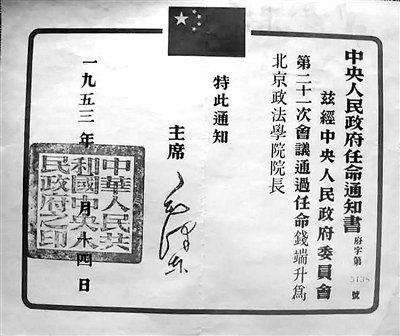 中央人民政府任命通知書 府字第 號
茲經中央人民政府委員會
第二十一次會議通過任命錢端升爲
北京政法學院院長
特此通知
主席 毛澤東
一九五三年 月十四日
中華人民共
和國中央人
民政府之印